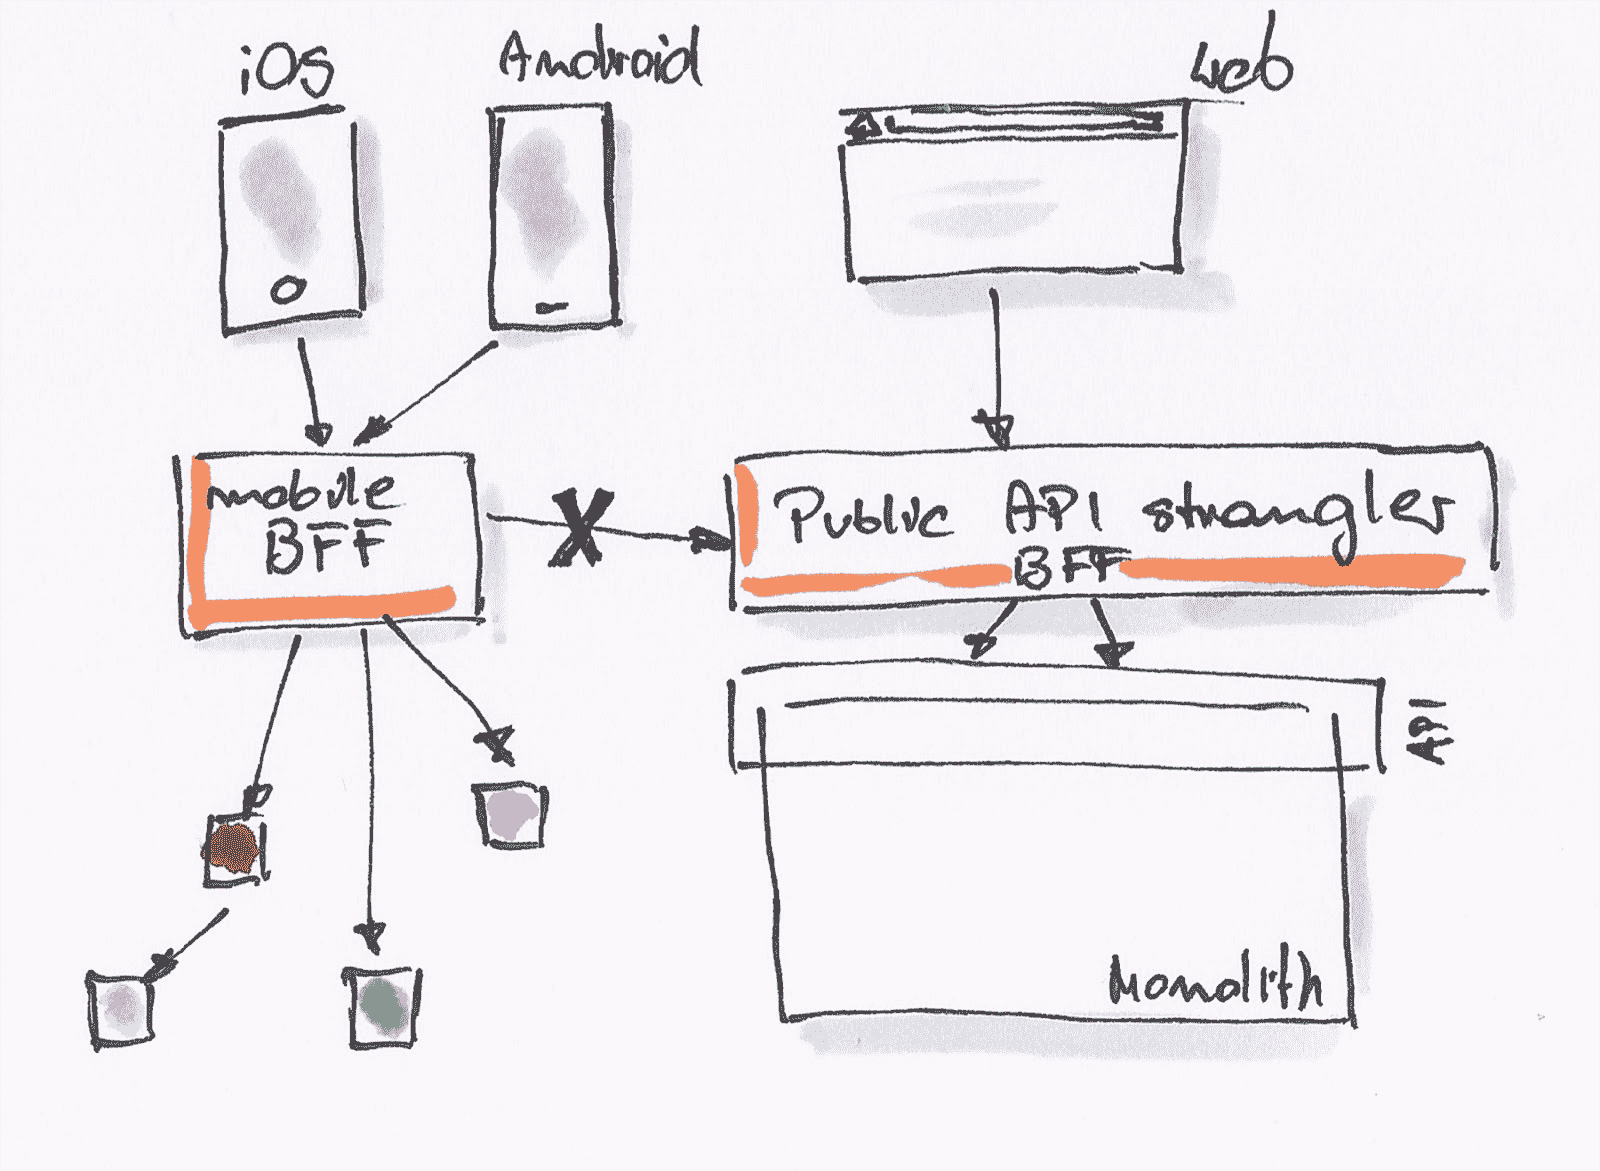 iOS
Android
web
mobile
BFF
Public API strangler
BFF
API
Monolith